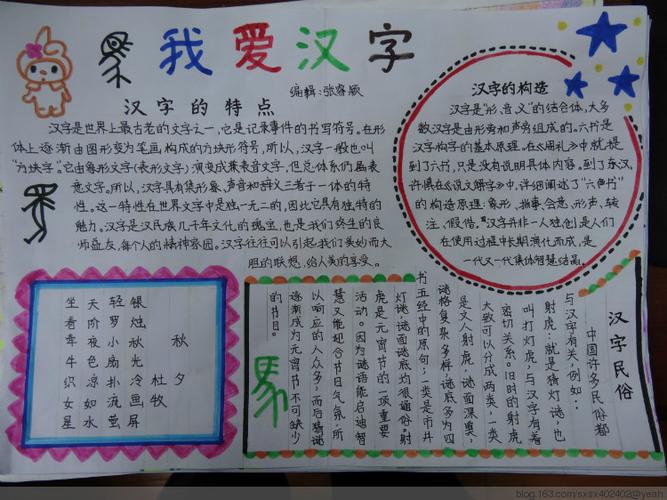 我爱汉字
编辑:张
汉字的特点
汉字是世界上最古老的文字之一,它是记录事件的书写符号。在形
体上逐渐由图形变为笔画构成的方块形符号。所以,汉字一般也叫
"方块字。"它由象形文字(表形文字)演变成兼表音文字,但总体系仍属表
意文字。所以,汉字具有集形象、声音和辞义三者于一体的特
性。这一特性在世界文字中是独一无二的,因此它具有独特的
魅力。汉字是汉民族几千年文化的瑰宝,也是我们终生的良
师益友,每个人的精神家园。汉字往往可以引起我们美妙而大
胆的联想,给人美的享受。
汉字的构造
汉字是"形、音、义"的结合体,大多
数汉字是由形旁和声旁组成的。六书是
汉字构字的基本原理,在《周礼》中就提
到了六书,只是没有说明具体内容。到了东汉,
许慎在《说文解字》中,详细阐述了"六书"
的构造原理:象形、指事、会意、形声、转
注、假借。汉字并非一人独创,是人们
在使用过程中长期演化而成,是
一代又一代集体智慧结晶。
秋夕
杜牧
银烛秋光冷画屏
轻罗小扇扑流萤
天阶夜色凉如水
坐看牵牛织女星
汉字民俗
中国许多民俗都
与汉字有关,例如:
射虎,就是猜灯谜,也
叫打灯虎,与汉字有着
密切关系。旧时的射虎
大致可以分成两类,一类
是文人射虎,谜面深奥,
谜格复杂多样,谜底多为四
书五经中的原句;一类是市井
灯谜,谜面谜底均很通俗。射
虎是元宵节的一项重要
活动。因为谜语能启迪智
慧又能迎合节日气氛,所
以响应的人众多,而后猜谜
逐渐成为元宵节不可缺少
的节目。
blog.163.com/sxsx402402@yeah